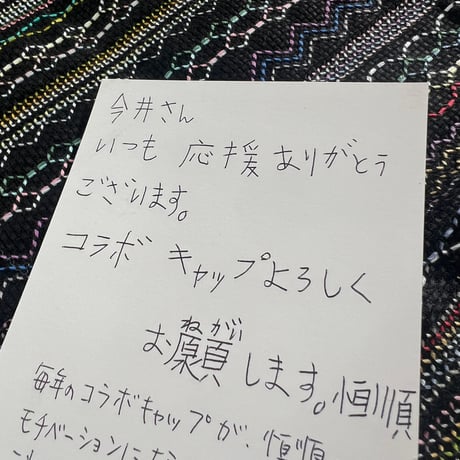 今井さん
いつも 応援 ありがとう
ございます。
コラボ キャップよろしく
ねがい
お願します。恒順
毎年のコラボキャップが、恒順
モチベーションに